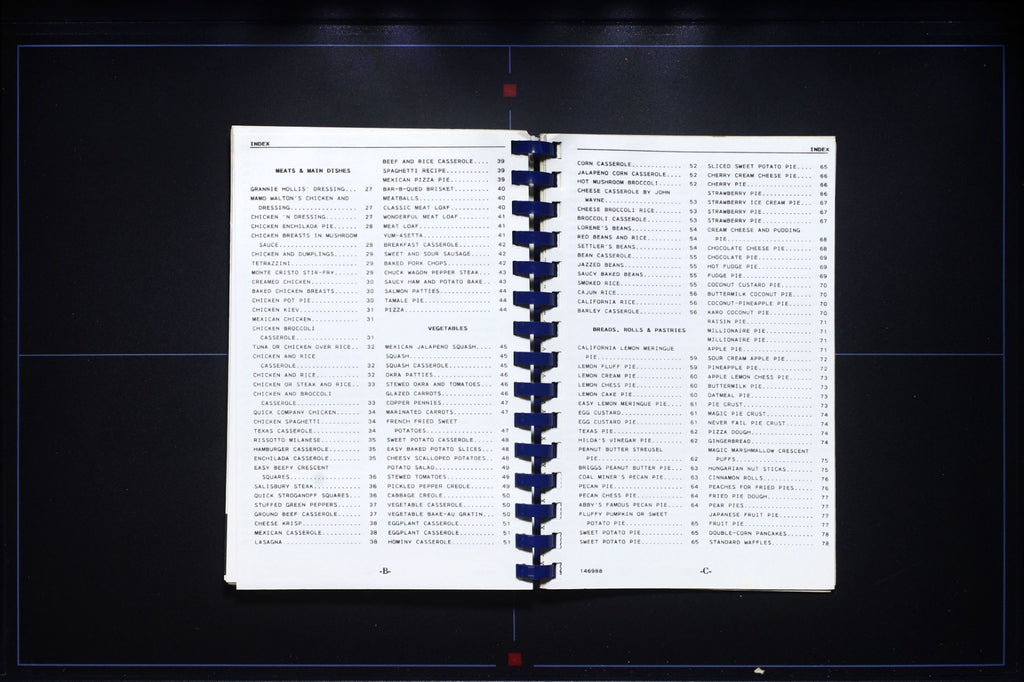 INDEX
MEATS & MAIN DISHES
GRANNIE HOLLIS' DRESSING... 27
MAMO WALTON'S CHICKEN AND
DRESSING................ 27
CHICKEN 'N DRESSING....... 27
CHICKEN ENCHILADA PIE..... 28
CHICKEN BREASTS IN MUSHROOM
SAUCE................... 28
CHICKEN AND DUMPLINGS..... 29
TETRAZZINI................ 29
MONTE CRISTO STIR-FRY..... 29
CREAMED CHICKEN........... 30
BAKED CHICKEN BREASTS..... 30
CHICKEN POT PIE........... 30
CHICKEN KIEV.............. 31
MEXICAN CHICKEN........... 31
CHICKEN BROCCOLI
CASSEROLE............... 31
TUNA OR CHICKEN OVER RICE.. 32
CHICKEN AND RICE
CASSEROLE............... 32
CHICKEN AND RICE.......... 32
CHICKEN OR STEAK AND RICE.. 33
CHICKEN AND BROCCOLI
CASSEROLE............... 33
QUICK COMPANY CHICKEN..... 34
CHICKEN SPAGHETTI......... 34
TEXAS CASSEROLE........... 34
RISSOTTO MILANESE......... 35
HAMBURGER CASSEROLE....... 35
ENCHILADA CASSEROLE....... 35
EASY BEEFY CRESCENT
SQUARES................. 36
SALISBURY STEAK........... 36
QUICK STROGANOFF SQUARES... 36
STUFFED GREEN PEPPERS..... 37
GROUND BEEF CASSEROLE..... 37
CHEESE KRISP.............. 38
MEXICAN CASSEROLE......... 38
LASAGNA................... 38
BEEF AND RICE CASSEROLE.... 39
SPAGHETTI RECIPE.......... 39
MEXICAN PIZZA PIE......... 39
BAR-B-QUED BRISKET........ 40
MEATBALLS................. 40
CLASSIC MEAT LOAF......... 40
WONDERFUL MEAT LOAF....... 41
MEAT LOAF................. 41
YUM-ASETTA................ 41
BREAKFAST CASSEROLE....... 42
SWEET AND SOUR SAUSAGE.... 42
BAKED PORK CHOPS.......... 42
CHUCK WAGON PEPPER STEAK... 43
SAUCY HAM AND POTATO BAKE.. 43
SALMON PATTIES............ 44
TAMALE PIE................ 44
PIZZA..................... 44
VEGETABLES
MEXICAN JALAPENO SQUASH.... 45
SQUASH.................... 45
SQUASH CASSEROLE.......... 46
OKRA PATTIES.............. 46
STEWED OKRA AND TOMATOES... 46
GLAZED CARROTS............ 46
COPPER PENNIES............ 47
MARINATED CARROTS......... 47
FRENCH FRIED SWEET
POTATOES................ 47
SWEET POTATO CASSEROLE.... 48
EASY BAKED POTATO SLICES... 48
CHEESY SCALLOPED POTATOES.. 48
POTATO SALAD.............. 49
STEWED TOMATOES........... 49
PICKLED PEPPER CREOLE..... 49
CABBAGE CREOLE............ 50
VEGETABLE CASSEROLE....... 50
VEGETABLE BAKE-AU GRATIN... 50
EGGPLANT CASSEROLE........ 51
EGGPLANT CASSEROLE........ 51
HOMINY CASSEROLE.......... 51
-B-
INDEX
CORN CASSEROLE............ 52
JALAPENO CORN CASSEROLE.... 52
HOT MUSHROOM BROCCOLI..... 52
CHEESE CASSEROLE BY JOHN
WAYNE................... 53
CHEESE BROCCOLI RICE...... 53
BROCCOLI CASSEROLE........ 53
LORENE'S BEANS............ 54
RED BEANS AND RICE........ 54
SETTLER'S BEANS........... 54
BEAN CASSEROLE............ 55
JAZZED BEANS.............. 55
SAUCY BAKED BEANS......... 55
SMOKED RICE............... 55
CAJUN RICE................ 56
CALIFORNIA RICE........... 56
BARLEY CASSEROLE.......... 56
BREADS, ROLLS & PASTRIES
CALIFORNIA LEMON MERINGUE
PIE..................... 59
LEMON FLUFF PIE........... 59
LEMON CREAM PIE........... 60
LEMON CHESS PIE........... 60
LEMON CAKE PIE............ 60
EASY LEMON MERINGUE PIE.... 61
EGG CUSTARD............... 61
EGG CUSTARD PIE........... 61
TEXAS PIE................. 62
HILDA'S VINEGAR PIE....... 62
PEANUT BUTTER STREUSEL
PIE..................... 62
BRIGGS PEANUT BUTTER PIE... 63
COAL MINER'S PECAN PIE.... 63
PECAN PIE................. 64
PECAN CHESS PIE........... 64
ABBY'S FAMOUS PECAN PIE.... 64
FLUFFY PUMPKIN OR SWEET
POTATO PIE.............. 65
SWEET POTATO PIE.......... 65
SWEET POTATO PIE.......... 65
SLICED SWEET POTATO PIE.... 65
CHERRY CREAM CHEESE PIE.... 66
CHERRY PIE................ 66
STRAWBERRY PIE............ 66
STRAWBERRY ICE CREAM PIE... 67
STRAWBERRY PIE............ 67
STRAWBERRY PIE............ 67
CREAM CHEESE AND PUDDING
PIE..................... 68
CHOCOLATE CHEESE PIE...... 68
CHOCOLATE PIE............. 69
HOT FUDGE PIE............. 69
FUDGE PIE................. 69
COCONUT CUSTARD PIE....... 70
BUTTERMILK COCONUT PIE.... 70
COCONUT-PINEAPPLE PIE..... 70
KARO COCONUT PIE.......... 70
RAISIN PIE................ 71
MILLIONAIRE PIE........... 71
MILLIONAIRE PIE........... 71
APPLE PIE................. 71
SOUR CREAM APPLE PIE...... 72
PINEAPPLE PIE............. 72
APPLE LEMON CHESS PIE..... 73
BUTTERMILK PIE............ 73
OATMEAL PIE............... 73
PIE CRUST................. 73
MAGIC PIE CRUST........... 74
NEVER FAIL PIE CRUST...... 74
PIZZA DOUGH............... 74
GINGERBREAD............... 74
MAGIC MARSHMALLOW CRESCENT
PUFFS................... 75
HUNGARIAN NUT STICKS...... 75
CINNAMON ROLLS............ 76
PEACHES FOR FRIED PIES.... 76
FRIED PIE DOUGH........... 77
PEAR PIES................. 77
JAPANESE FRUIT PIE........ 77
FRUIT PIE................. 77
DOUBLE-CORN PANCAKES...... 78
STANDARD WAFFLES.......... 78
146988
-C-